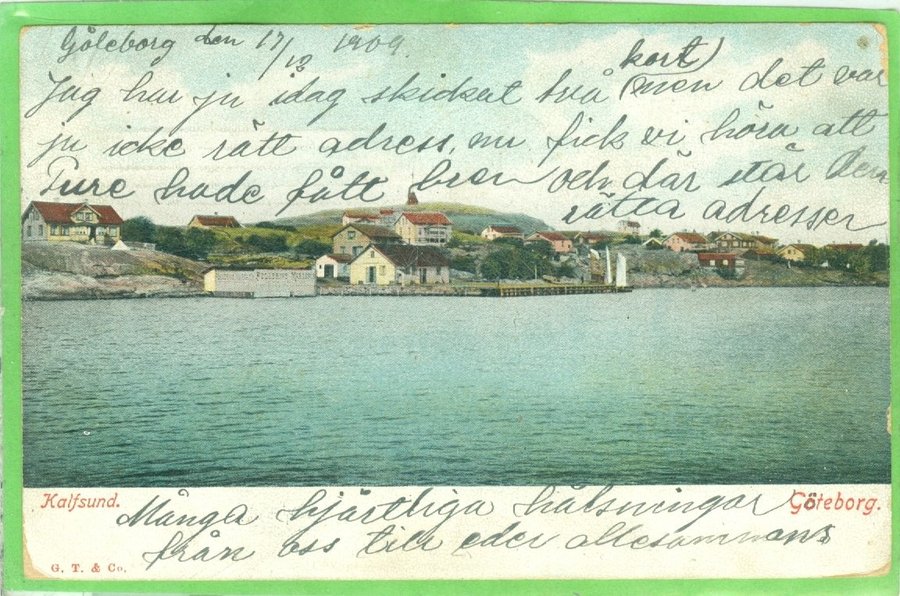 Göteborg den 17/12 1909.
kort)
Jag har ju idag skickat två (men det var
ju icke rätt adress, nu fick vi höra att
Ture hade fått brev och där står den
rätta adressen
Kalfsund.
Göteborg.
Många hjärtliga hälsningar
från oss till eder allesammans
G. T. & Co.